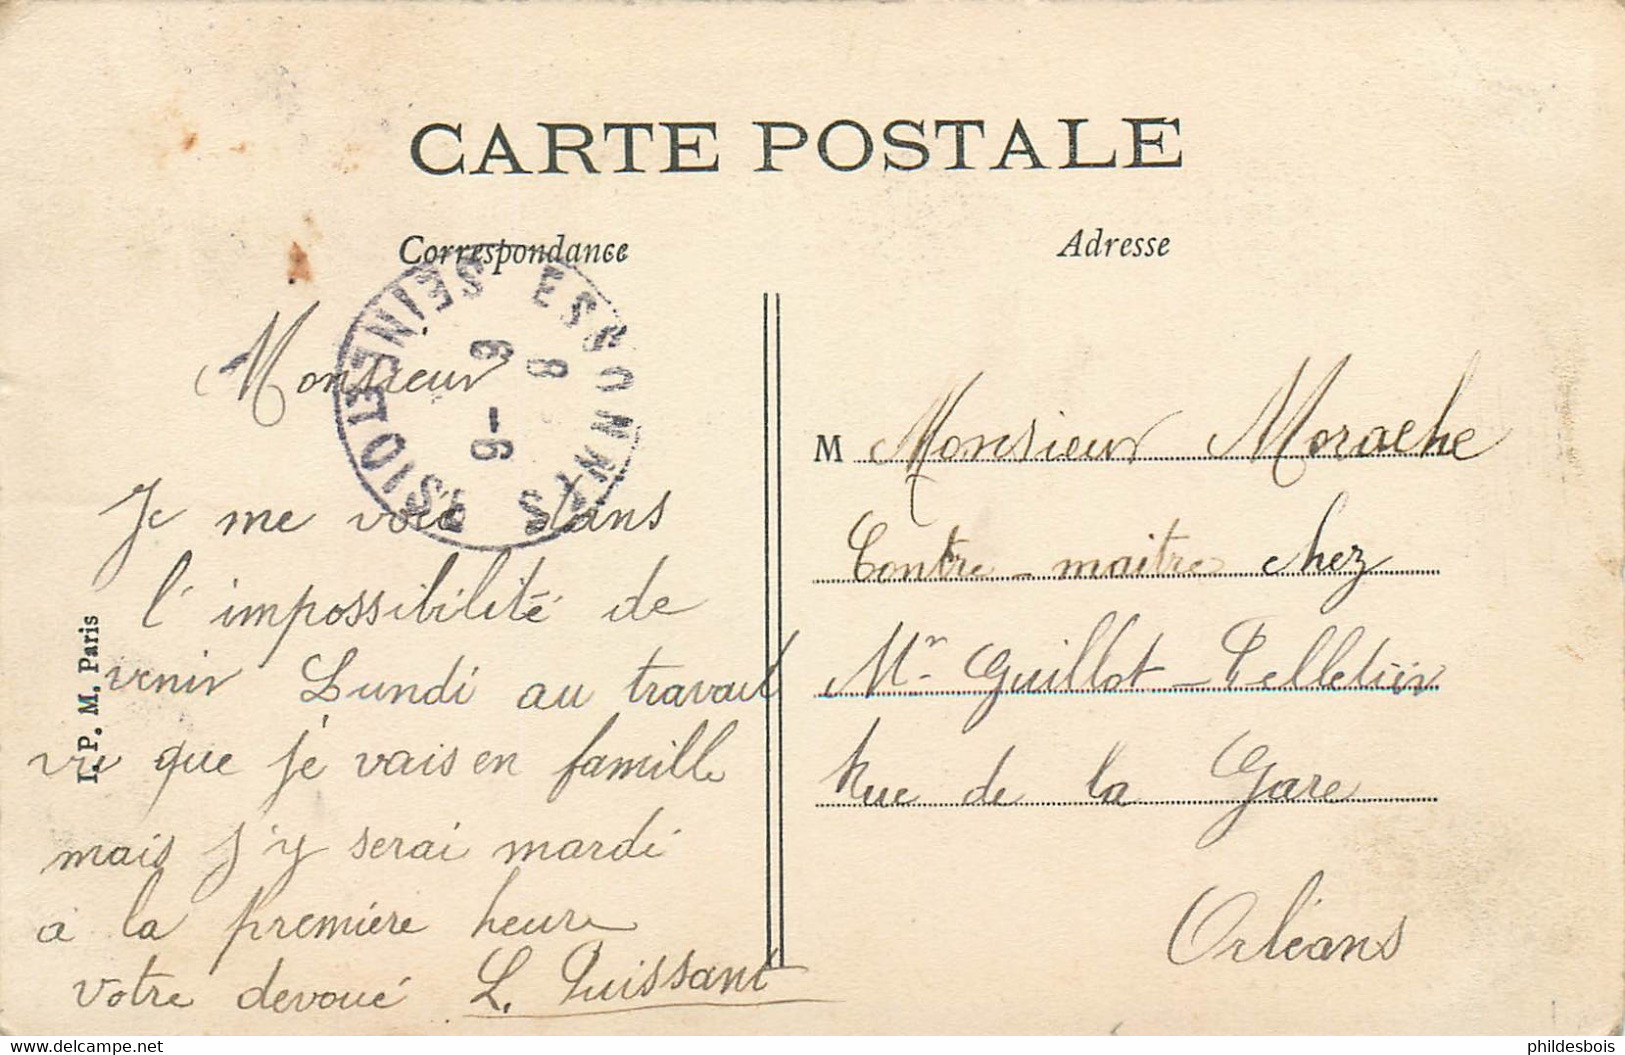 CARTE POSTALE
Correspondance
Adresse
ESSONNES
SEINE ET OISE
8
9 - 9
Monsieur
Je me vois dans
l'impossibilité de
venir Lundi au travail
vu que je vais en famille
mais j'y serai mardi
a la première heure
votre devoué L. Puissant
I. P. M. Paris
M Monsieur Morache
Contre-maitre chez
Mr Guillot-Pelletier
Rue de la Gare
Orléans
www.delcampe.net
phildesbois